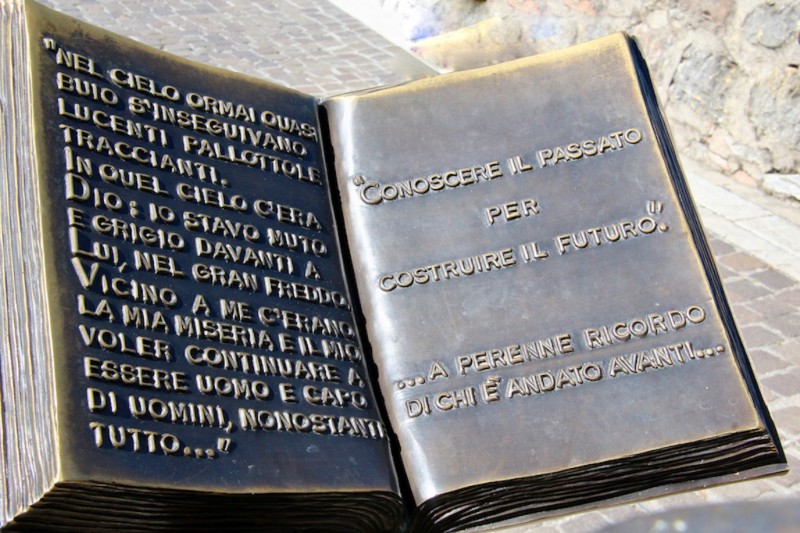 "NEL CIELO ORMAI QUASI
BUIO S'INSEGUIVANO
LUCENTI PALLOTTOLE
TRACCIANTI.
IN QUEL CIELO C'ERA
DIO: IO STAVO MUTO
E GRIGIO DAVANTI A
LUI, NEL GRAN FREDDO.
VICINO A ME C'ERANO
LA MIA MISERIA E IL MIO
VOLER CONTINUARE A
ESSERE UOMO E CAPO
DI UOMINI, NONOSTANTE
TUTTO..."
"CONOSCERE IL PASSATO
PER
COSTRUIRE IL FUTURO".
...A PERENNE RICORDO
DI CHI È ANDATO AVANTI...